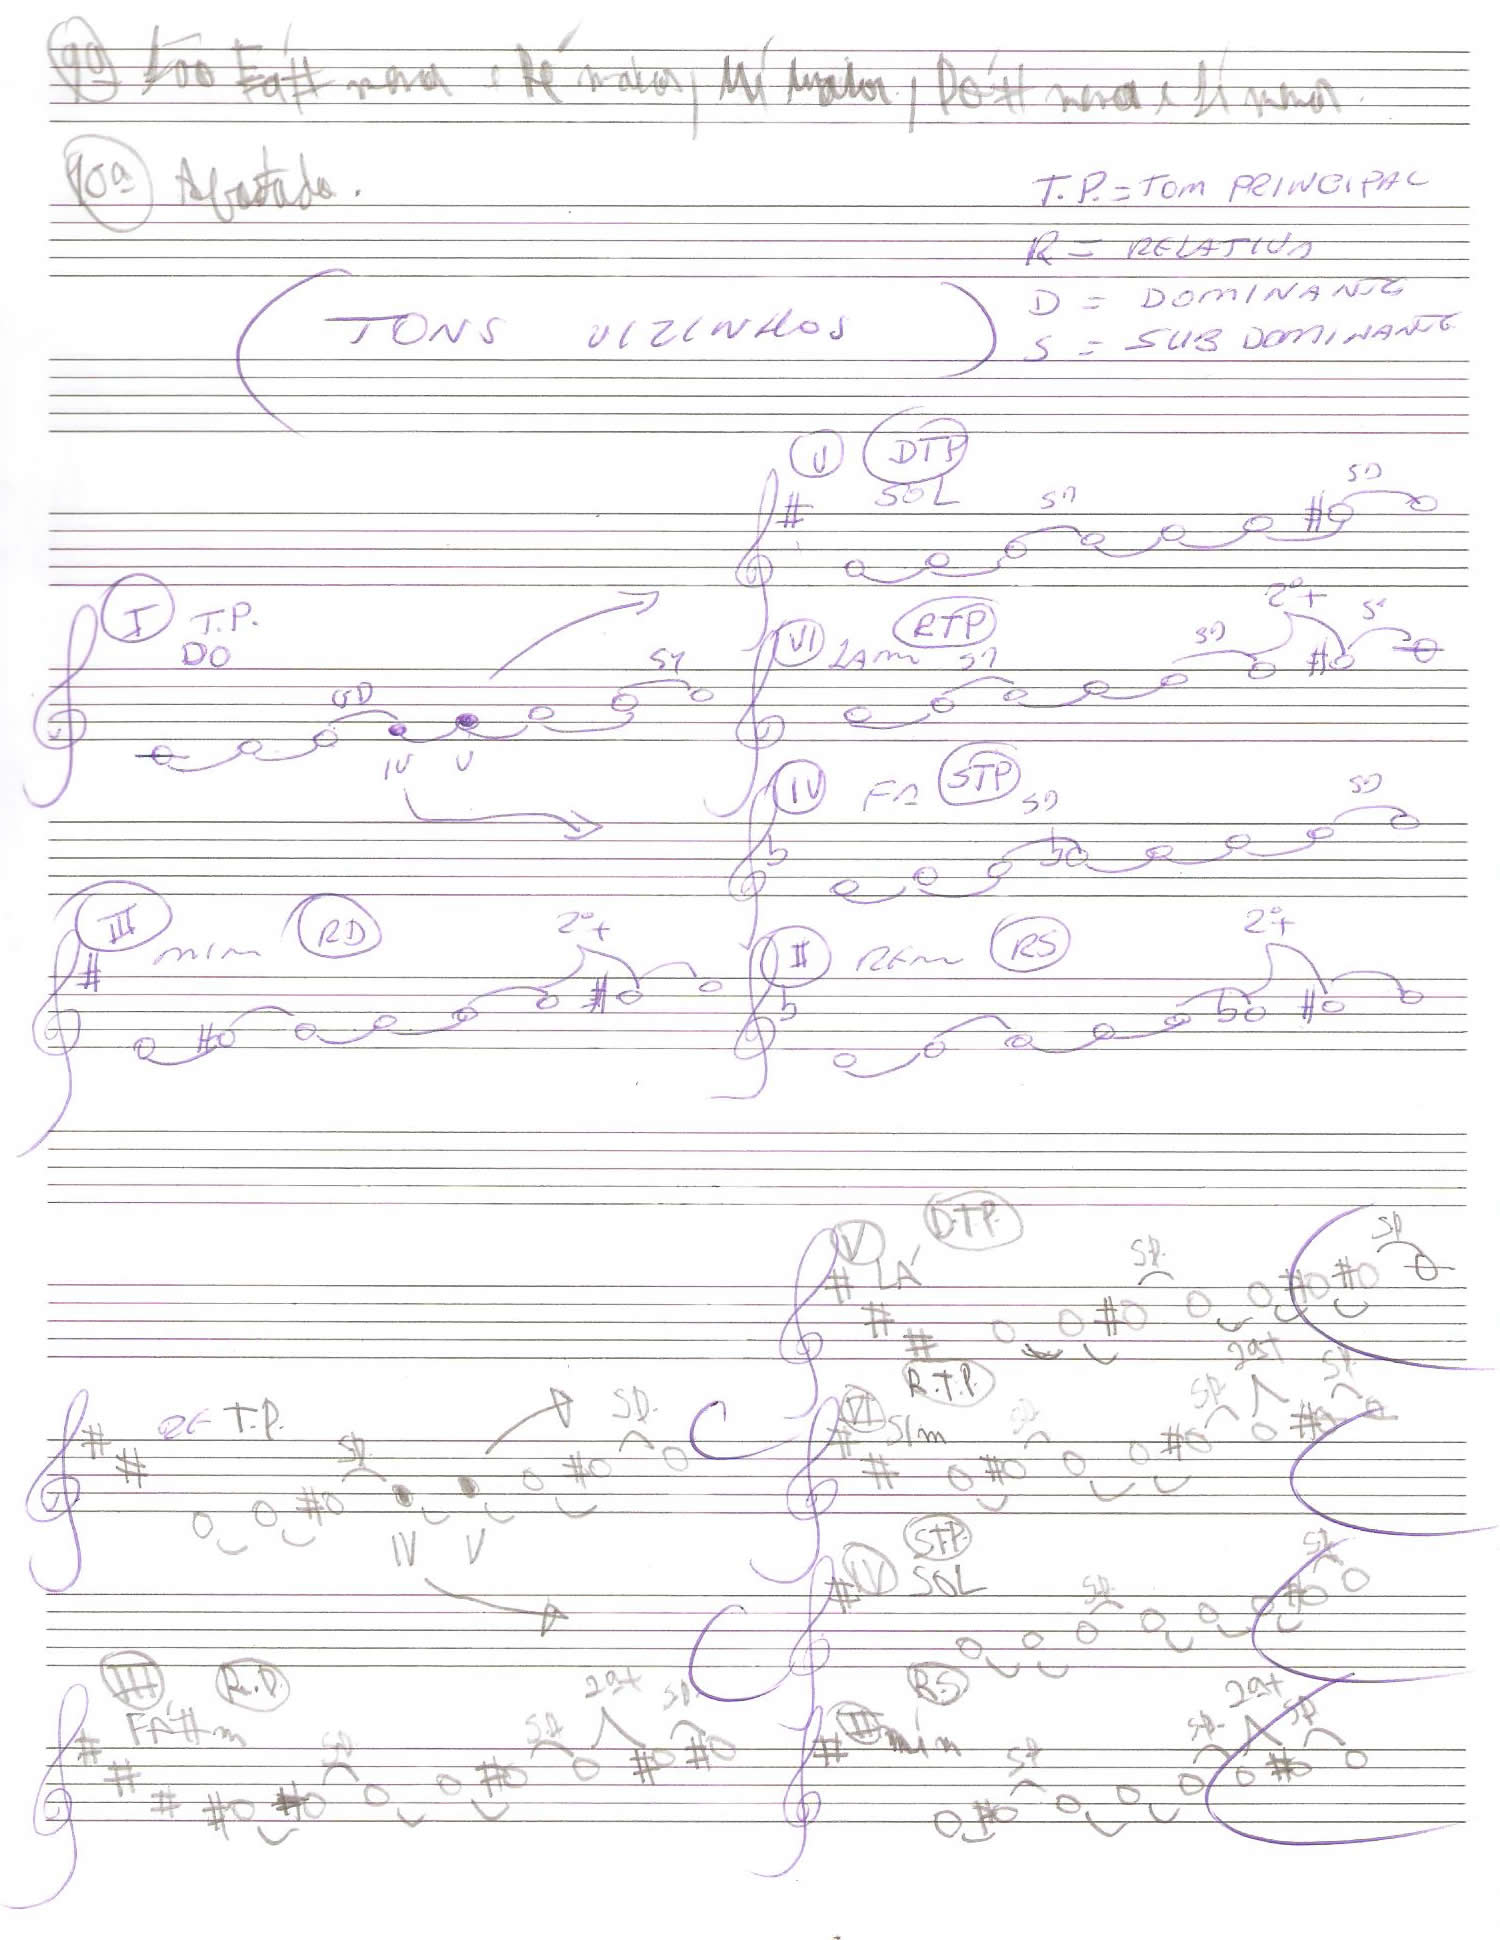 9ª São Fá# menor, Ré maior, Mi maior, Dó# menor e Si menor.
10ª Afastado.
T.P. = TOM PRINCIPAL
R = RELATIVA
D = DOMINANTE
S = SUB DOMINANTE
(TONS VIZINHOS)
V DTP
SOL
SD SD
I T.P.
DO
SD SD
IV V
VI LAm RTP
SD SD 2ª+ S
IV FA STP
SD SD
III MIm RD
2ª+
II REm RS
2ª+
V D.T.P.
LÁ
SD. SD
RE T.P.
SD. SD.
IV V
VI R.T.P.
SIm
SD. SD. 2ª+ SD.
IV STP.
SOL
SD. SD.
III R.D.
FÁ#m
SD. SD. 2ª+ SD.
II RS
mim
SD. SD. 2ª+ SD.